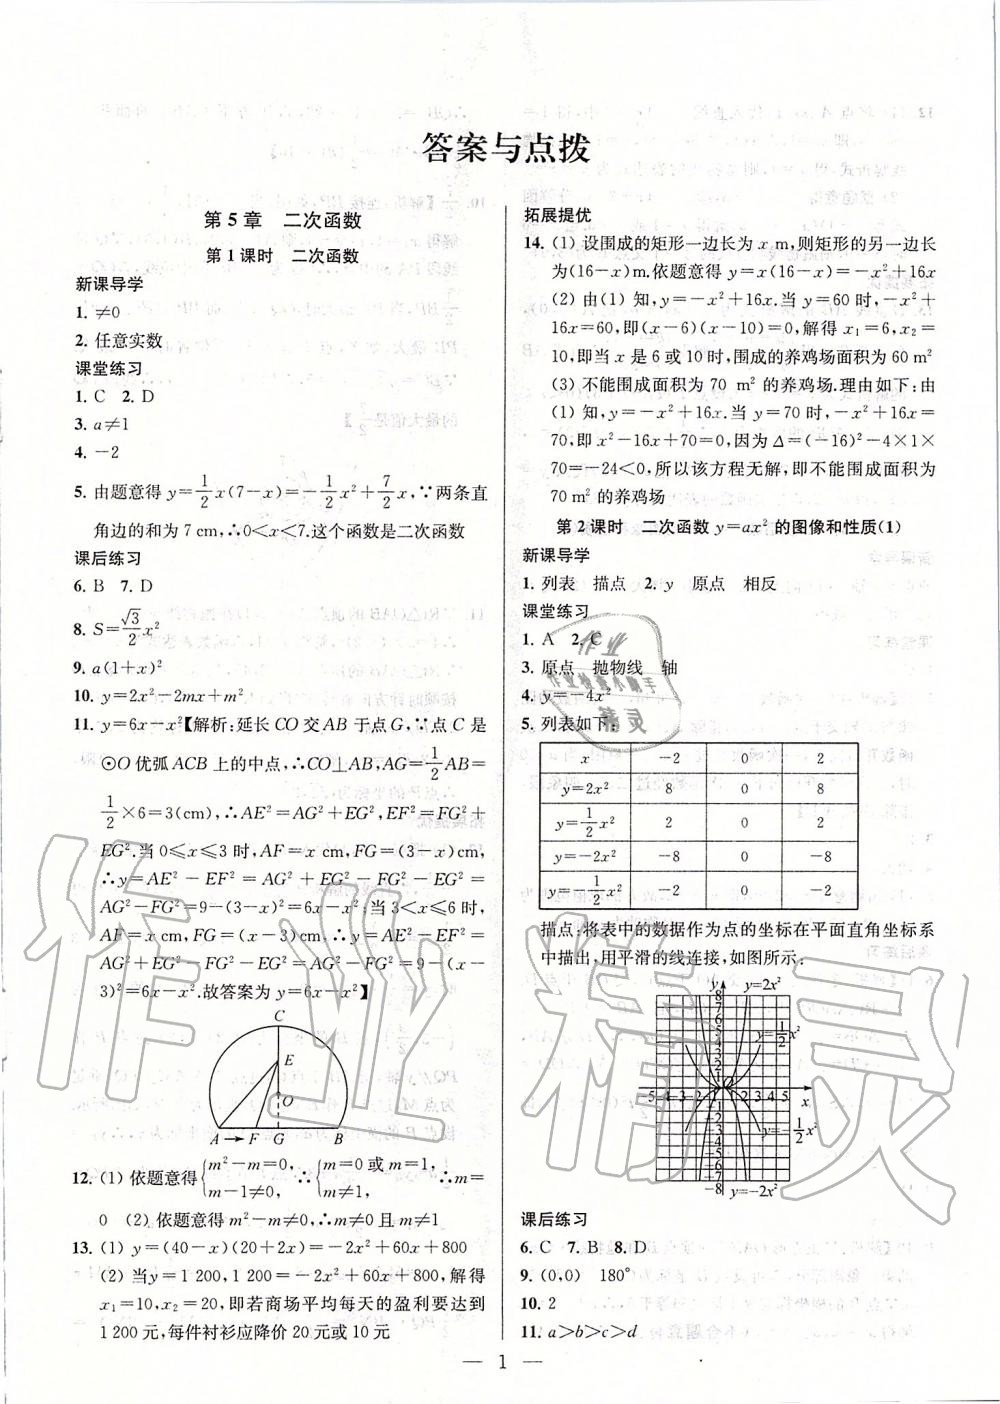 答案与点拨
第5章　二次函数
第1课时　二次函数
新课导学
1. ≠0
2. 任意实数
课堂练习
1. C　2. D
3. a≠1
4. －2
5. 由题意得 y＝1/2 x(7－x)＝－1/2 x²＋7/2 x,∵两条直
角边的和为 7 cm,∴0＜x＜7.这个函数是二次函数
课后练习
6. B　7. D
8. S＝√3/2 x²
9. a(1＋x)²
10. y＝2x²－2mx＋m²
11. y＝6x－x²【解析:延长 CO 交 AB 于点 G,∵点 C 是
⊙O 优弧 ACB 上的中点,∴CO⊥AB,AG＝1/2 AB＝
1/2×6＝3(cm),∴AE²＝AG²＋EG²,EF²＝FG²＋
EG².当 0≤x≤3 时,AF＝x cm,FG＝(3－x)cm,
∴y＝AE²－EF²＝AG²＋EG²－FG²－EG²＝
AG²－FG²＝9－(3－x)²＝6x－x²;当 3＜x≤6 时,
AF＝x cm,FG＝(x－3)cm,∴y＝AE²－EF²＝
AG²＋EG²－FG²－EG²＝AG²－FG²＝9－(x－
3)²＝6x－x².故答案为 y＝6x－x²】
C
E
O
A → F G B
12. (1) 依题意得{m²－m＝0, m－1≠0, ∴{m＝0 或 m＝1, m≠1, ∴m＝
0　(2) 依题意得 m²－m≠0,∴m≠0 且 m≠1
13. (1) y＝(40－x)(20＋2x)＝－2x²＋60x＋800
(2) 当 y＝1 200,1 200＝－2x²＋60x＋800,解得
x₁＝10,x₂＝20,即若商场平均每天的盈利要达到
1 200 元,每件衬衫应降价 20 元或 10 元
拓展提优
14. (1) 设围成的矩形一边长为 x m,则矩形的另一边长
为(16－x)m.依题意得 y＝x(16－x)＝－x²＋16x
(2) 由(1) 知,y＝－x²＋16x.当 y＝60 时,－x²＋
16x＝60,即(x－6)(x－10)＝0,解得 x₁＝6,x₂＝
10,即当 x 是 6 或 10 时,围成的养鸡场面积为 60 m²
(3) 不能围成面积为 70 m² 的养鸡场.理由如下:由
(1) 知,y＝－x²＋16x.当 y＝70 时,－x²＋16x＝
70,即 x²－16x＋70＝0,因为 Δ＝(－16)²－4×1×
70＝－24＜0,所以该方程无解,即不能围成面积为
70 m² 的养鸡场
第2课时　二次函数 y＝ax² 的图像和性质(1)
新课导学
1. 列表　描点　2. y　原点　相反
课堂练习
1. A　2. C
3. 原点　抛物线　轴
4. y＝－4x²
5. 列表如下:
x　－2　0　2
y＝2x²　8　0　8
y＝1/2 x²　2　0　2
y＝－2x²　－8　0　－8
y＝－1/2 x²　－2　0　－2
描点:将表中的数据作为点的坐标在平面直角坐标系
中描出,用平滑的线连接,如图所示:
y　y＝2x²
8
7
6
5
4
3
2
1
y＝1/2 x²
－5－4－3－2－1　O　1 2 3 4 5　x
－1
－2
－3
－4
－5
－6
－7
－8
y＝－1/2 x²
y＝－2x²
课后练习
6. C　7. B　8. D
9. (0,0)　180°
10. 2
11. a＞b＞c＞d
— 1 —
作业精灵
作业
作业检查小助手
精灵